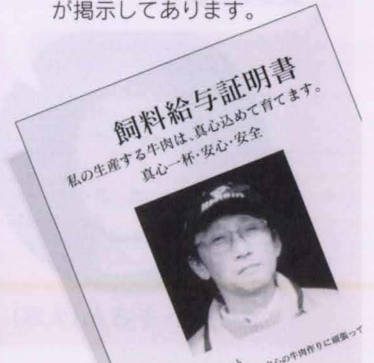 が掲示してあります。
飼料給与証明書
私の生産する牛肉は、真心込めて育てます。
真心一杯・安心・安全
心の牛肉作りに頑張って